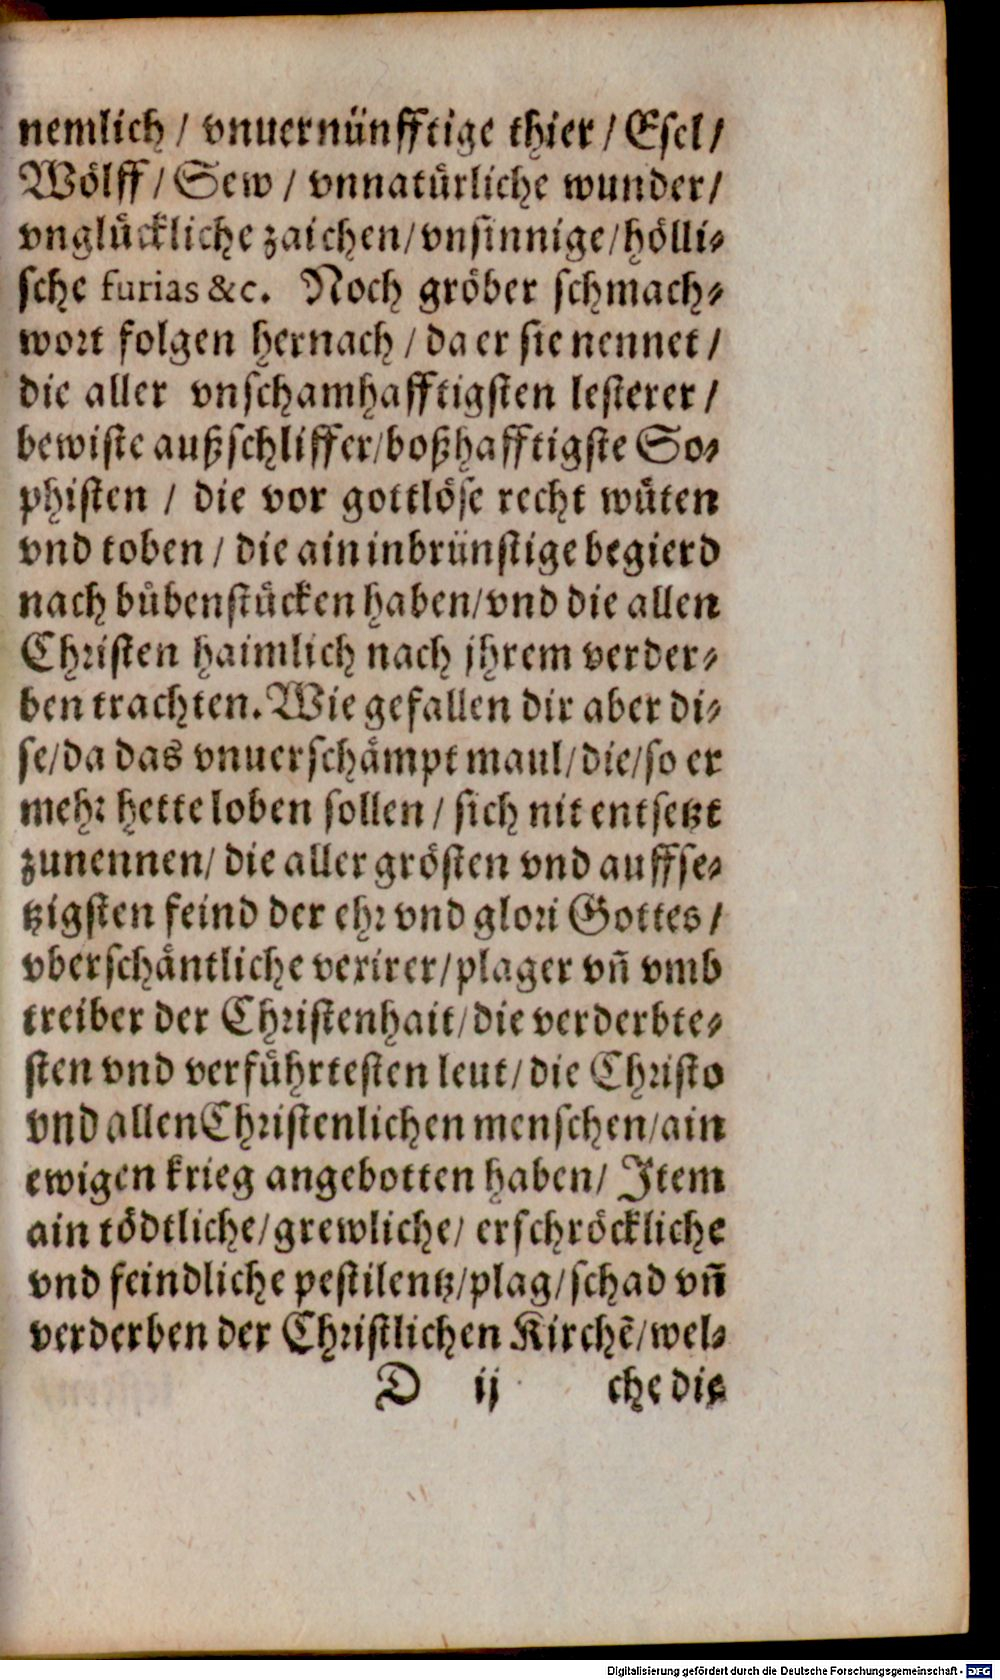 nemlich / vnuernünfftige thier / Esel /
Wölff / Sew / vnnatürliche wunder /
vnglückliche zaichen / vnsinnige / hölli-
sche furias &c. Noch gröber schmach-
wort folgen hernach / da er sie nennet /
die aller vnschamhafftigsten lesterer /
bewiste außschliffer / boßhafftigste So-
phisten / die vor gottlöse recht wüten
vnd toben / die ain inbrünstige begierd
nach bůbenstücken haben / vnd die allen
Christen haimlich nach jhrem verder-
ben trachten. Wie gefallen dir aber di-
se / da das vnuerschämpt maul / die / so er
mehr hette loben sollen / sich nit entsetzt
zunennen / die aller grösten vnd auffse-
tzigsten feind der ehr vnd glori Gottes /
vberschäntliche vexirer / plager vñ vmb
treiber der Christenhait / die verderbte-
sten vnd verführtesten leut / die Christo
vnd allen Christenlichen menschen / ain
ewigen krieg angebotten haben / Item
ain tödtliche / grewliche / erschröckliche
vnd feindliche pestilentz / plag / schad vñ
verderben der Christlichen Kirchẽ / wel-
D ij che die
Digitalisierung gefördert durch die Deutsche Forschungsgemeinschaft - DFG